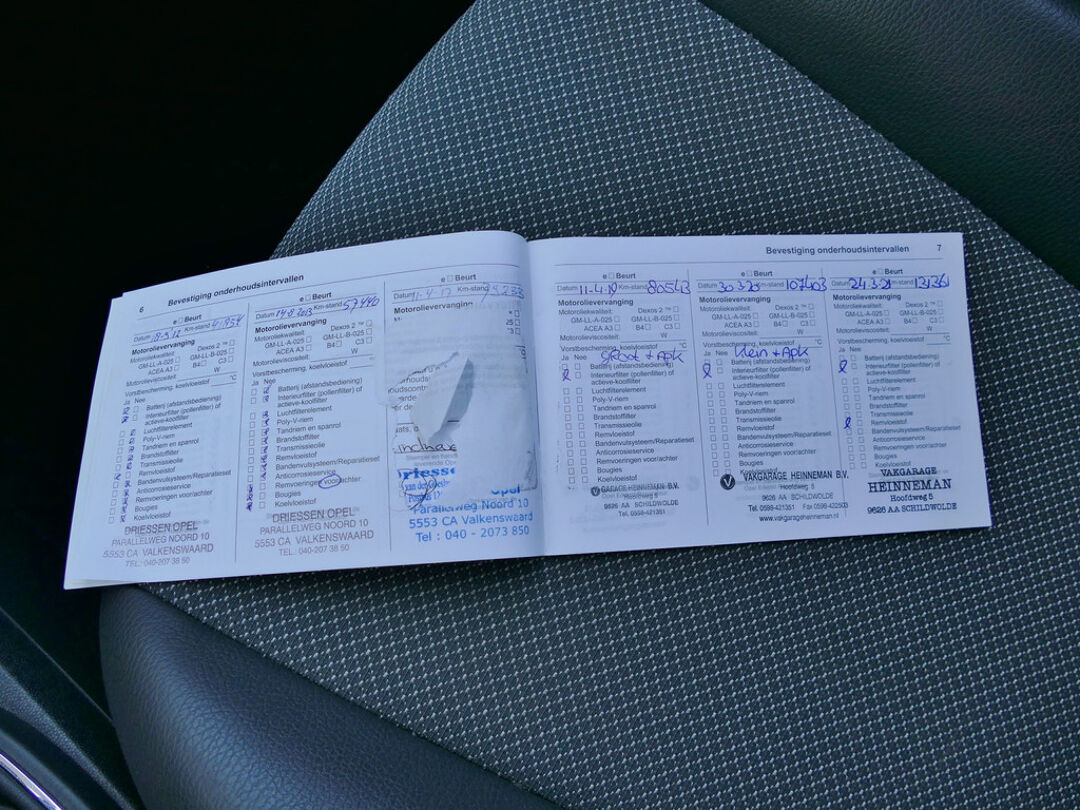 6
Bevestiging onderhoudsintervallen
e Beurt
Datum 18-5-12 Km-stand 41954
Motorolievervanging
Motorkwaliteit: Dexos 2 ™
GM-LL-A-025 GM-LL-B-025
ACEA A3 B4 C3
Motorolieviscositeit: W
Vorstbescherming, koelvloeistof °C
Ja Nee
Batterij (afstandsbediening)
Interieurfilter (pollenfilter) of
actieve-koolfilter
Luchtfilterelement
Poly-V-riem
Tandriem en spanrol
Brandstoffilter
Transmissieolie
Remvloeistof
Bandenvulsysteem/Reparatieset
Anticorrosieservice
Remvoeringen voor/achter
Bougies
Koelvloeistof
DRIESSEN OPEL
PARALLELWEG NOORD 10
5553 CA VALKENSWAARD
TEL.: 040-207 38 50
e Beurt
Datum 14-8-2013 Km-stand 57440
Motorolievervanging
Motoroliekwaliteit: Dexos 2 ™
GM-LL-A-025 GM-LL-B-025
ACEA A3 B4 C3
Motorolieviscositeit: W
Vorstbescherming, koelvloeistof °C
Ja Nee
Batterij (afstandsbediening)
Interieurfilter (pollenfilter) of
actieve-koolfilter
Luchtfilterelement
Poly-V-riem
Tandriem en spanrol
Brandstoffilter
Transmissieolie
Remvloeistof
Bandenvulsysteem/Reparatieset
Anticorrosieservice
Remvoeringen voor/achter
Bougies
Koelvloeistof
DRIESSEN OPEL
PARALLELWEG NOORD 10
5553 CA VALKENSWAARD
TEL.: 040-207 38 50
e Beurt
Datum Km-stand
Motorolievervanging
Opel
Parallelweg Noord 10
5553 CA Valkenswaard
Tel : 040 - 2073 850
Bevestiging onderhoudsintervallen 7
e Beurt
Datum 11-4-19 Km-stand 80543
Motorolievervanging
Motoroliekwaliteit: Dexos 2 ™
GM-LL-A-025 GM-LL-B-025
ACEA A3 B4 C3
Motorolieviscositeit: W
Vorstbescherming, koelvloeistof °C
Ja Nee Groot + Apk
Batterij (afstandsbediening)
Interieurfilter (pollenfilter) of
actieve-koolfilter
Luchtfilterelement
Poly-V-riem
Tandriem en spanrol
Brandstoffilter
Transmissieolie
Remvloeistof
Bandenvulsysteem/Reparatieset
Anticorrosieservice
Remvoeringen voor/achter
Bougies
Koelvloeistof
GARAGE HEINNEMAN B.V.
Hoofdweg 5
9626 AA SCHILDWOLDE
Tel. 0598-421351
e Beurt
Datum 30 3 20 Km-stand 107403
Motorolievervanging
Motoroliekwaliteit: Dexos 2 ™
GM-LL-A-025 GM-LL-B-025
ACEA A3 B4 C3
Motorolieviscositeit: W
Vorstbescherming, koelvloeistof °C
Ja Nee Klein + Apk
Batterij (afstandsbediening)
Interieurfilter (pollenfilter) of
actieve-koolfilter
Luchtfilterelement
Poly-V-riem
Tandriem en spanrol
Brandstoffilter
Transmissieolie
Remvloeistof
Bandenvulsysteem/Reparatieset
Anticorrosieservice
Remvoeringen voor/achter
Bougies
Koelvloeistof
VAKGARAGE HEINNEMAN B.V.
Hoofdweg 5
9626 AA SCHILDWOLDE
Tel. 0598-421351 Fax 0598-422503
www.vakgarageheinneman.nl
e Beurt
Datum 24-3-21 Km-stand 121361
Motorolievervanging
Motoroliekwaliteit: Dexos 2 ™
GM-LL-A-025 GM-LL-B-025
ACEA A3 B4 C3
Motorolieviscositeit: W
Vorstbescherming, koelvloeistof °C
Ja Nee
Batterij (afstandsbediening)
Interieurfilter (pollenfilter) of
actieve-koolfilter
Luchtfilterelement
Poly-V-riem
Tandriem en spanrol
Brandstoffilter
Transmissieolie
Remvloeistof
Bandenvulsysteem/Reparatieset
Anticorrosieservice
Remvoeringen voor/achter
Bougies
Koelvloeistof
VAKGARAGE
HEINNEMAN
Hoofdweg 5
9626 AA SCHILDWOLDE